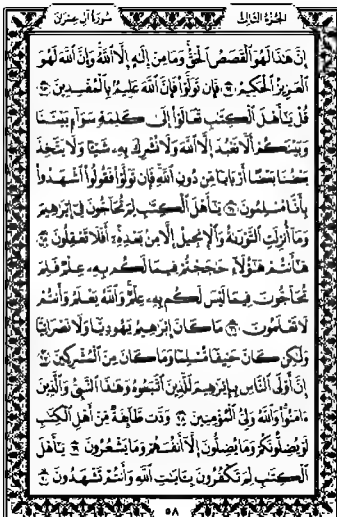 الجُزْءُ الثَّالِثُ
سُورَةُ آلِ عِمْرَانَ
إِنَّ هَٰذَا لَهُوَ ٱلْقَصَصُ ٱلْحَقُّ وَمَا مِنْ إِلَٰهٍ إِلَّا ٱللَّهُ وَإِنَّ ٱللَّهَ لَهُوَ
ٱلْعَزِيزُ ٱلْحَكِيمُ ٦٢ فَإِن تَوَلَّوْا۟ فَإِنَّ ٱللَّهَ عَلِيمٌۢ بِٱلْمُفْسِدِينَ ٦٣
قُلْ يَٰٓأَهْلَ ٱلْكِتَٰبِ تَعَالَوْا۟ إِلَىٰ كَلِمَةٍ سَوَآءٍۭ بَيْنَنَا
وَبَيْنَكُمْ أَلَّا نَعْبُدَ إِلَّا ٱللَّهَ وَلَا نُشْرِكَ بِهِۦ شَيْـًٔا وَلَا يَتَّخِذَ
بَعْضُنَا بَعْضًا أَرْبَابًا مِّن دُونِ ٱللَّهِ فَإِن تَوَلَّوْا۟ فَقُولُوا۟ ٱشْهَدُوا۟
بِأَنَّا مُسْلِمُونَ ٦٤ يَٰٓأَهْلَ ٱلْكِتَٰبِ لِمَ تُحَآجُّونَ فِىٓ إِبْرَٰهِيمَ
وَمَآ أُنزِلَتِ ٱلتَّوْرَىٰةُ وَٱلْإِنجِيلُ إِلَّا مِنۢ بَعْدِهِۦٓ أَفَلَا تَعْقِلُونَ ٦٥
هَٰٓأَنتُمْ هَٰٓؤُلَآءِ حَٰجَجْتُمْ فِيمَا لَكُم بِهِۦ عِلْمٌ فَلِمَ
تُحَآجُّونَ فِيمَا لَيْسَ لَكُم بِهِۦ عِلْمٌ وَٱللَّهُ يَعْلَمُ وَأَنتُمْ
لَا تَعْلَمُونَ ٦٦ مَا كَانَ إِبْرَٰهِيمُ يَهُودِيًّا وَلَا نَصْرَانِيًّا
وَلَٰكِن كَانَ حَنِيفًا مُّسْلِمًا وَمَا كَانَ مِنَ ٱلْمُشْرِكِينَ ٦٧
إِنَّ أَوْلَى ٱلنَّاسِ بِإِبْرَٰهِيمَ لَلَّذِينَ ٱتَّبَعُوهُ وَهَٰذَا ٱلنَّبِىُّ وَٱلَّذِينَ
ءَامَنُوا۟ وَٱللَّهُ وَلِىُّ ٱلْمُؤْمِنِينَ ٦٨ وَدَّت طَّآئِفَةٌ مِّنْ أَهْلِ ٱلْكِتَٰبِ
لَوْ يُضِلُّونَكُمْ وَمَا يُضِلُّونَ إِلَّآ أَنفُسَهُمْ وَمَا يَشْعُرُونَ ٦٩ يَٰٓأَهْلَ
ٱلْكِتَٰبِ لِمَ تَكْفُرُونَ بِـَٔايَٰتِ ٱللَّهِ وَأَنتُمْ تَشْهَدُونَ ٧٠
٥٨